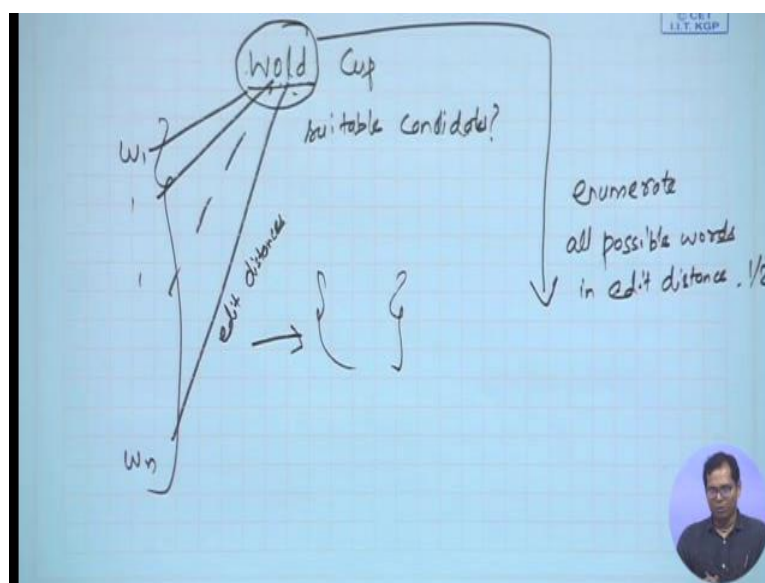 © CET
I.I.T. KGP
Wold Cup
suitable candidate?
W1
edit distances
enumerate
all possible words
in edit distance . 1/2
Wn